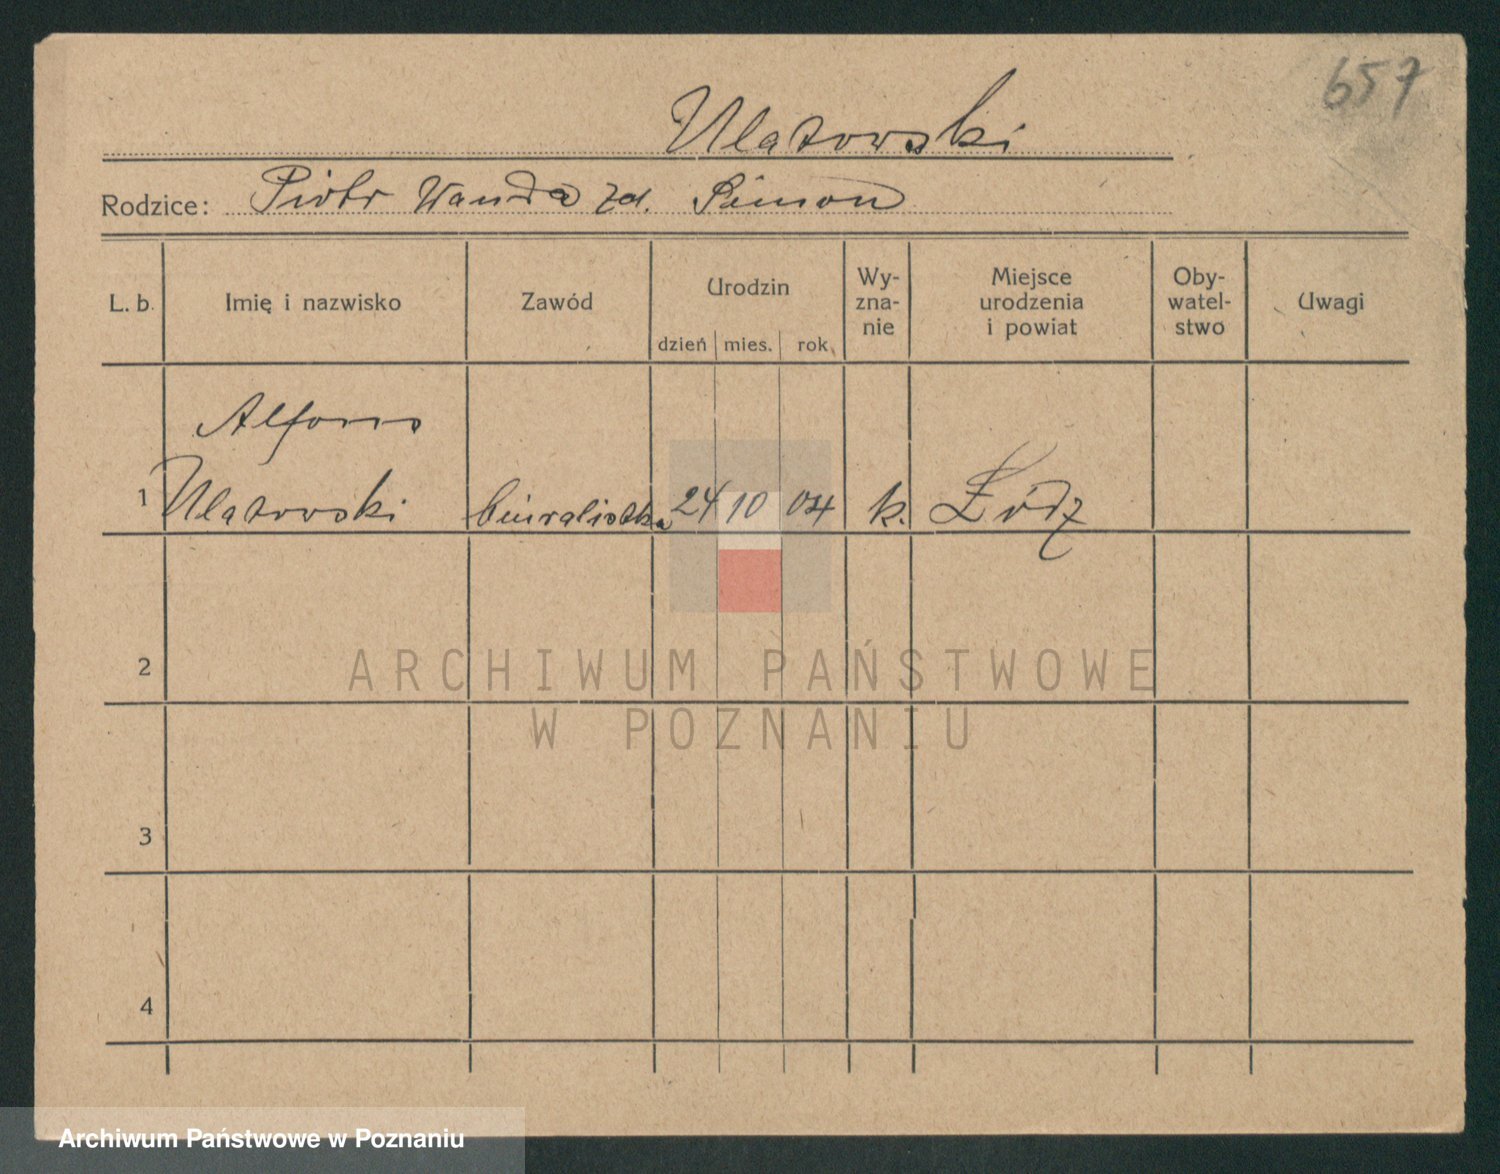 657
Ulatowski
Rodzice: Piotr Wanda zd. Simon
L. b. Imię i nazwisko Zawód Urodzin dzień mies. rok Wy-zna-nie Miejsce urodzenia i powiat Oby-watel-stwo Uwagi
Alfons
1 Ulatowski biuralistka 24 10 04 k. Łódź
2
ARCHIWUM PAŃSTWOWE
W POZNANIU
3
4
Archiwum Państwowe w Poznaniu